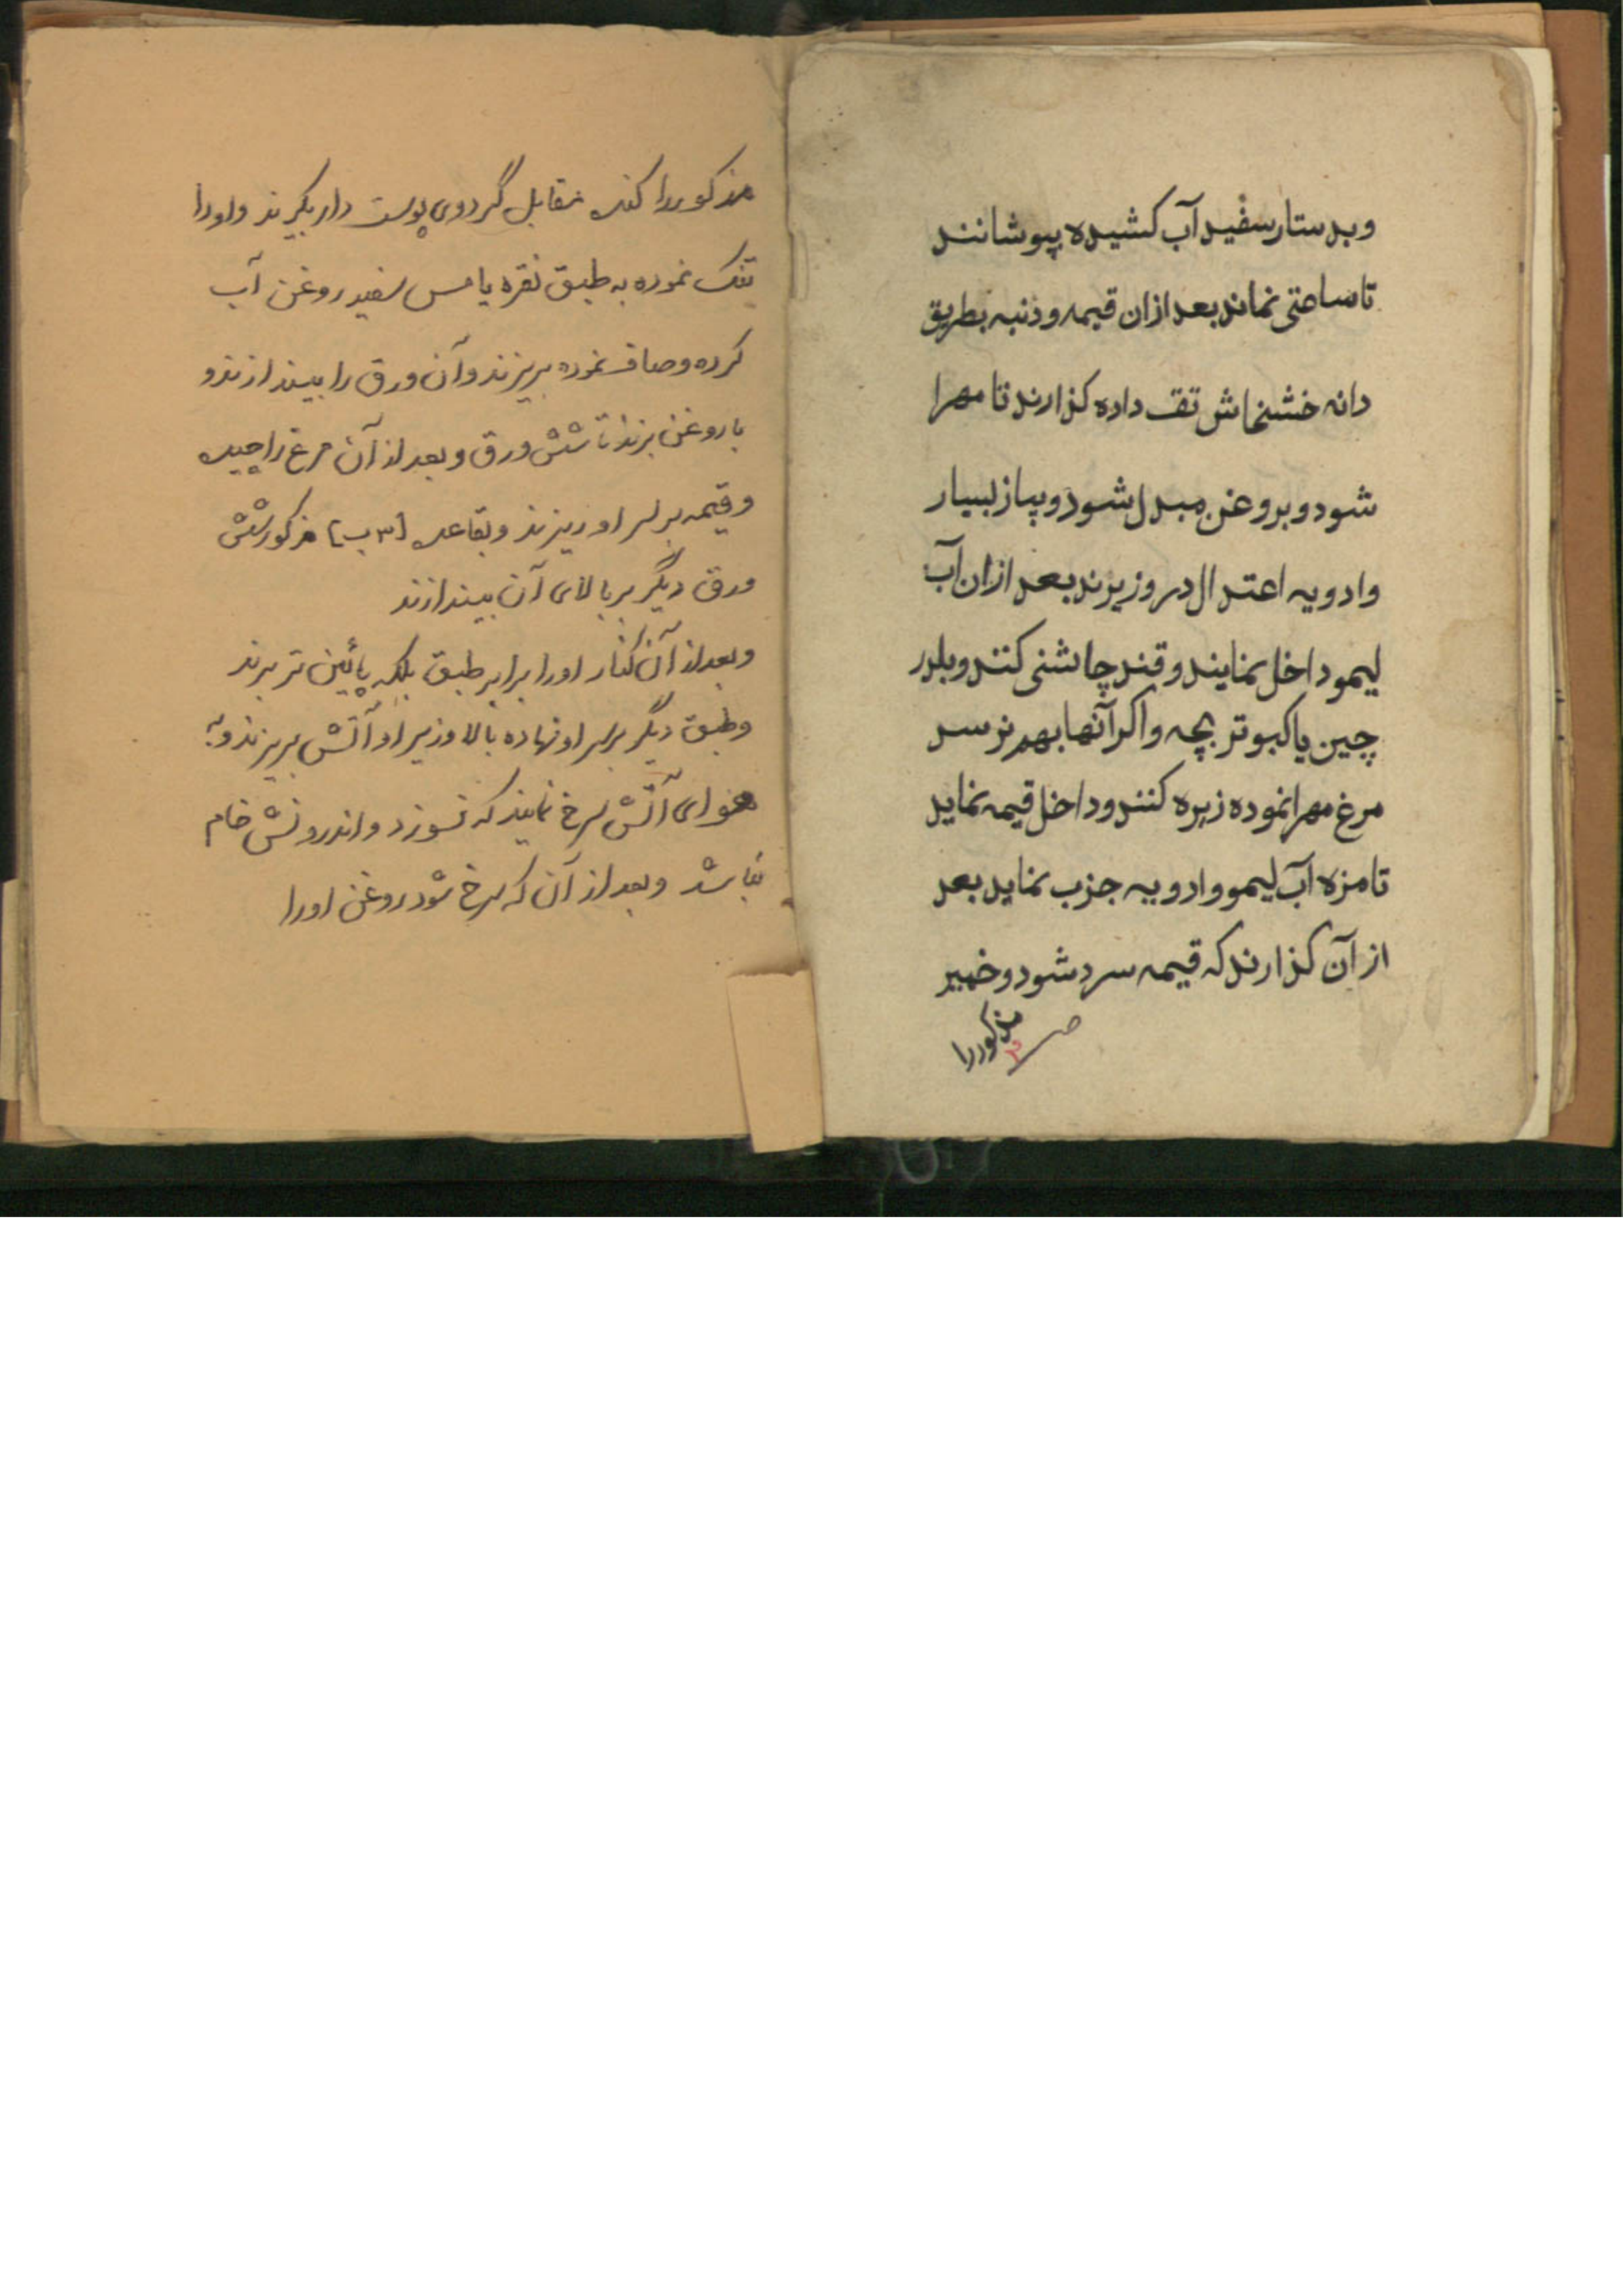 وبدستار سفید آب کشیده پپوشانند
تا ساعتی نماند بعد ازان قیمه و دنبه بطریق
دانه خشخاش تف داده کذارند تا مهرا
شود و بروغن مبدل شود و پیاز بسیار
وادویه اعتدال در وزیرند بعد ازان آب
لیمو داخل نمایند و قند چاشنی کنند و بلدر
چین یا کبوتر بچه واکر آنها بهم نرسد
مرغ مهرا نموده زیره کنند و داخل قیمه نماید
تا مزه آب لیمو وادویه جزب نماید بعد
از آن کذارند که قیمه سرد شود و خمیر
مذکور را
۳
مذکور را کنده مقابل گردوی پوست دار بگیرند و اورا
تنک نموده به طبق نقره یا مس سفید روغن آب
کرده و صاف نموده بریزند و آن ورق را بیندازند و
با روغن بزند تا شش ورق و بعد از آن مرغ را چیده
و قیمه بر سر او ریزند و بقاعده [۳ب] مذکور شش
ورق دیگر بر بالای آن بیندازند
و بعد از آن کنار اورا برابر طبق بلکه پائین تر برند
و طبق دیگر بر سر او نهاده بالا و زیر او آتش بریزند و به
هوای آتش سرخ نمایند که نسوزد و اندرونش خام
نباشد و بعد از آن که سرخ شود روغن اورا